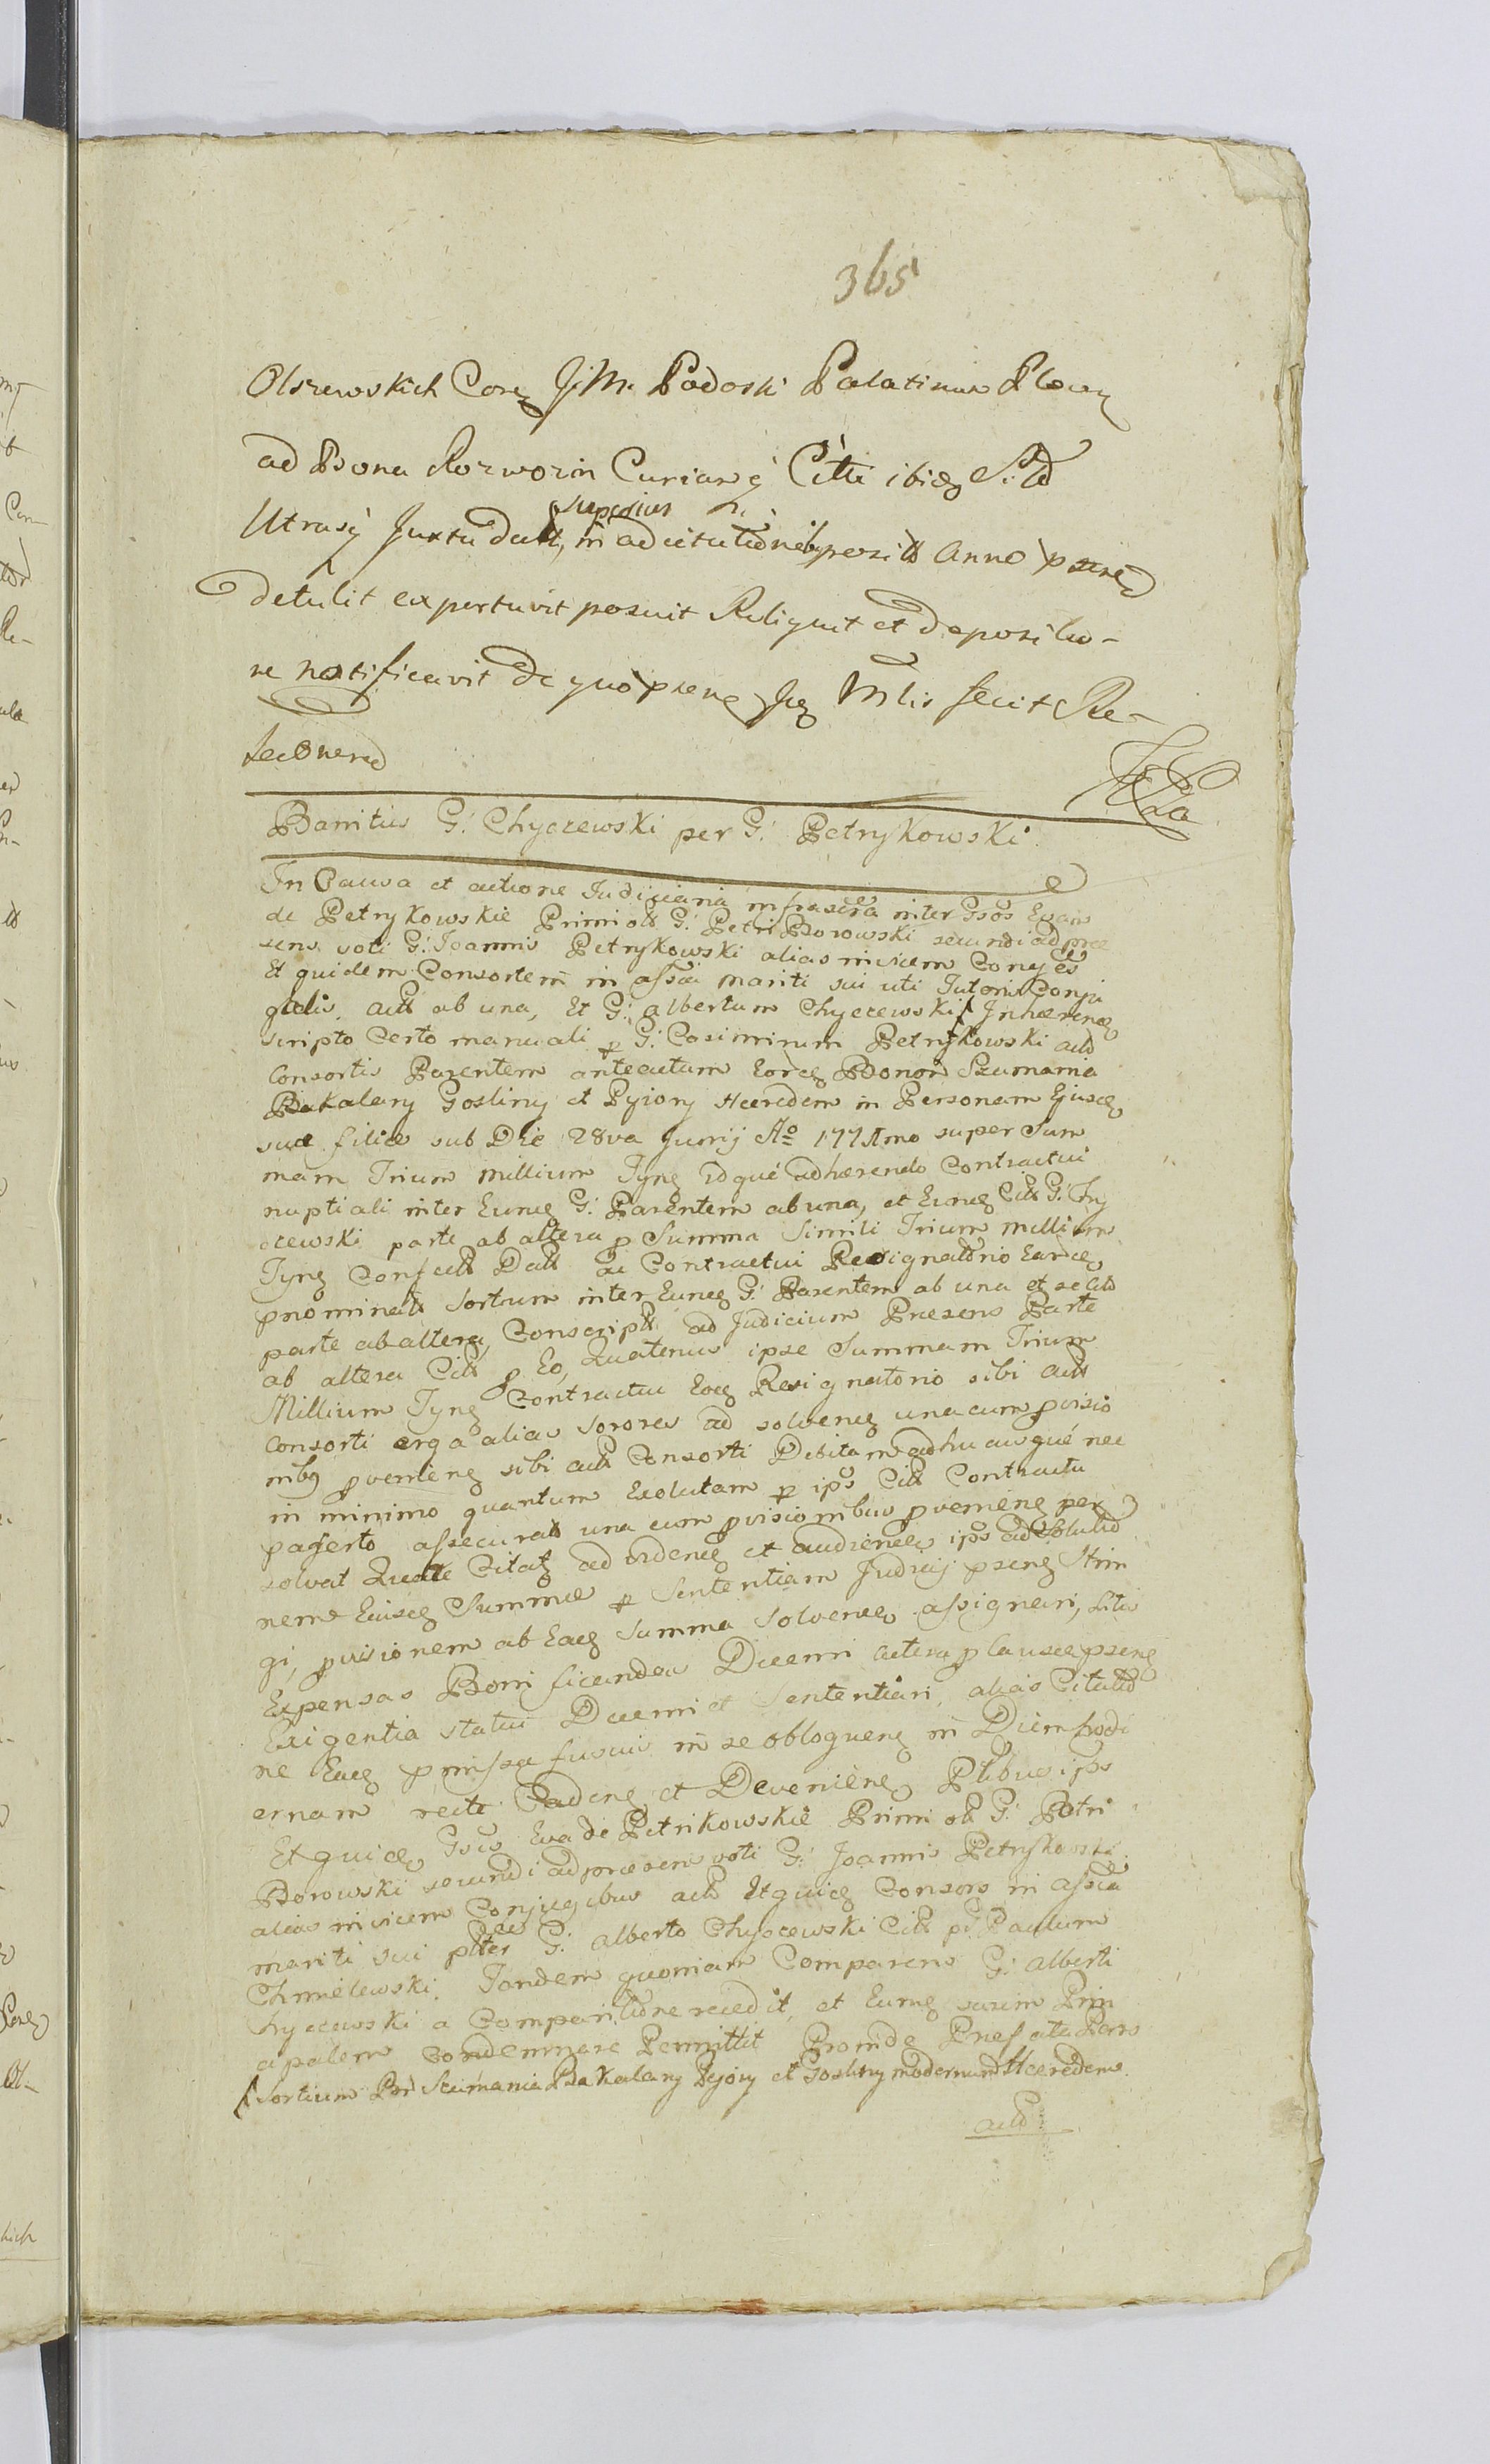 365
Olszewskich Cor JM. Podoski Palatinus Plocen
ad Bona Rozwozin Curiam Citti ibid
superius
Utrasq Juxta datt, in adcitationeb posit Anno psne
detulit exportavit posuit Reliquit et deposita-
ne notificavit De quo psens Jus Mlis fecit Re-
laonem
Banitus G. Chyczewski per G. Petrykowski
In Causa et actione Judiciaria infrascra inter Gsos Evam
de Petrykowskie Primi olt G. Petri Borowski secundi ad prae
sens voti G. Joannis Petrykowski alias invicem Conges
Et quidem Consortem in assa mariti sui uti Tutoris Conju
galis, actt ab una, Et G. Albertum Chyczewski Inhaeren
scripto Certo manuali p G. Casimirum Petrykowski actt
Consortis Parentem anteactum Eord Bonor Szumania
Bakalary Gosliny et Pyiory Haeredem in Personam Ejusd
suae filiae sub Die 28va Junij Ao 177 mo super Sum
mam Trium Millium Tyn idque adhaerendo Contractui
nuptiali inter Eund G. Parentem ab una, et Eund Citt G. Chy
czewski parte ab altera p Summa Simili Trium millium
Tyn Confectt Datt ac Contractui Resignatorio Earund
pnominatt Sortium inter Eund G. Parentem ab una et se actt
parte ab altera, Conscript ad Judicium Praesens Parte
ab altera Citt p Eo, Quatenus ipse Summam Trium
Millium Tyn Contractu Eod Resignatorio sibi actt
Consorti erga alias Sorores ad solvend una cum pvisio
nibq pvenien sibi actt Consorti Debitam adhucusque nec
in minimo quantum Exolutam p ips Citt Contractu
passerto assecurat una cum pvisionibus pvenien per
solvat Quare Citat ad viden et audien ips ad Soluto
nem Eiusd Summae p Sententiam Judicij psen Strin
gi, pvisionem ab Ead Summa Solvend assignari, Litis
Expensas Bonificandas Decerni Caetera p Causae psen
Exigentia statui Decerni et Sententiari, alias Citato
ne Ead pmissa fusius in se obloquen in Diem hodi
ernam recte Caden et Devenien Ptibus ips
Et quid Gsis Eva de Petrikowskie Primi olt G. Petri
Borowski secundi ad praesens voti G. Joannis Petrykowski
alias invicem Conjugibus actt Et quid Consors in assa
mariti sui plter G. Alberto Chyczewski Citt p Paulum
Chmielewski. Tandem quoniam Comparens G. Alberti
Chyczewski a Comparitione recedit, et Eund suum Prin
cipalem Condemnare Permittit Proinde Praefata Pars
Sortium Bon Szumania Bakalary Pyiory et Gosliny modernum Haeredem
actt